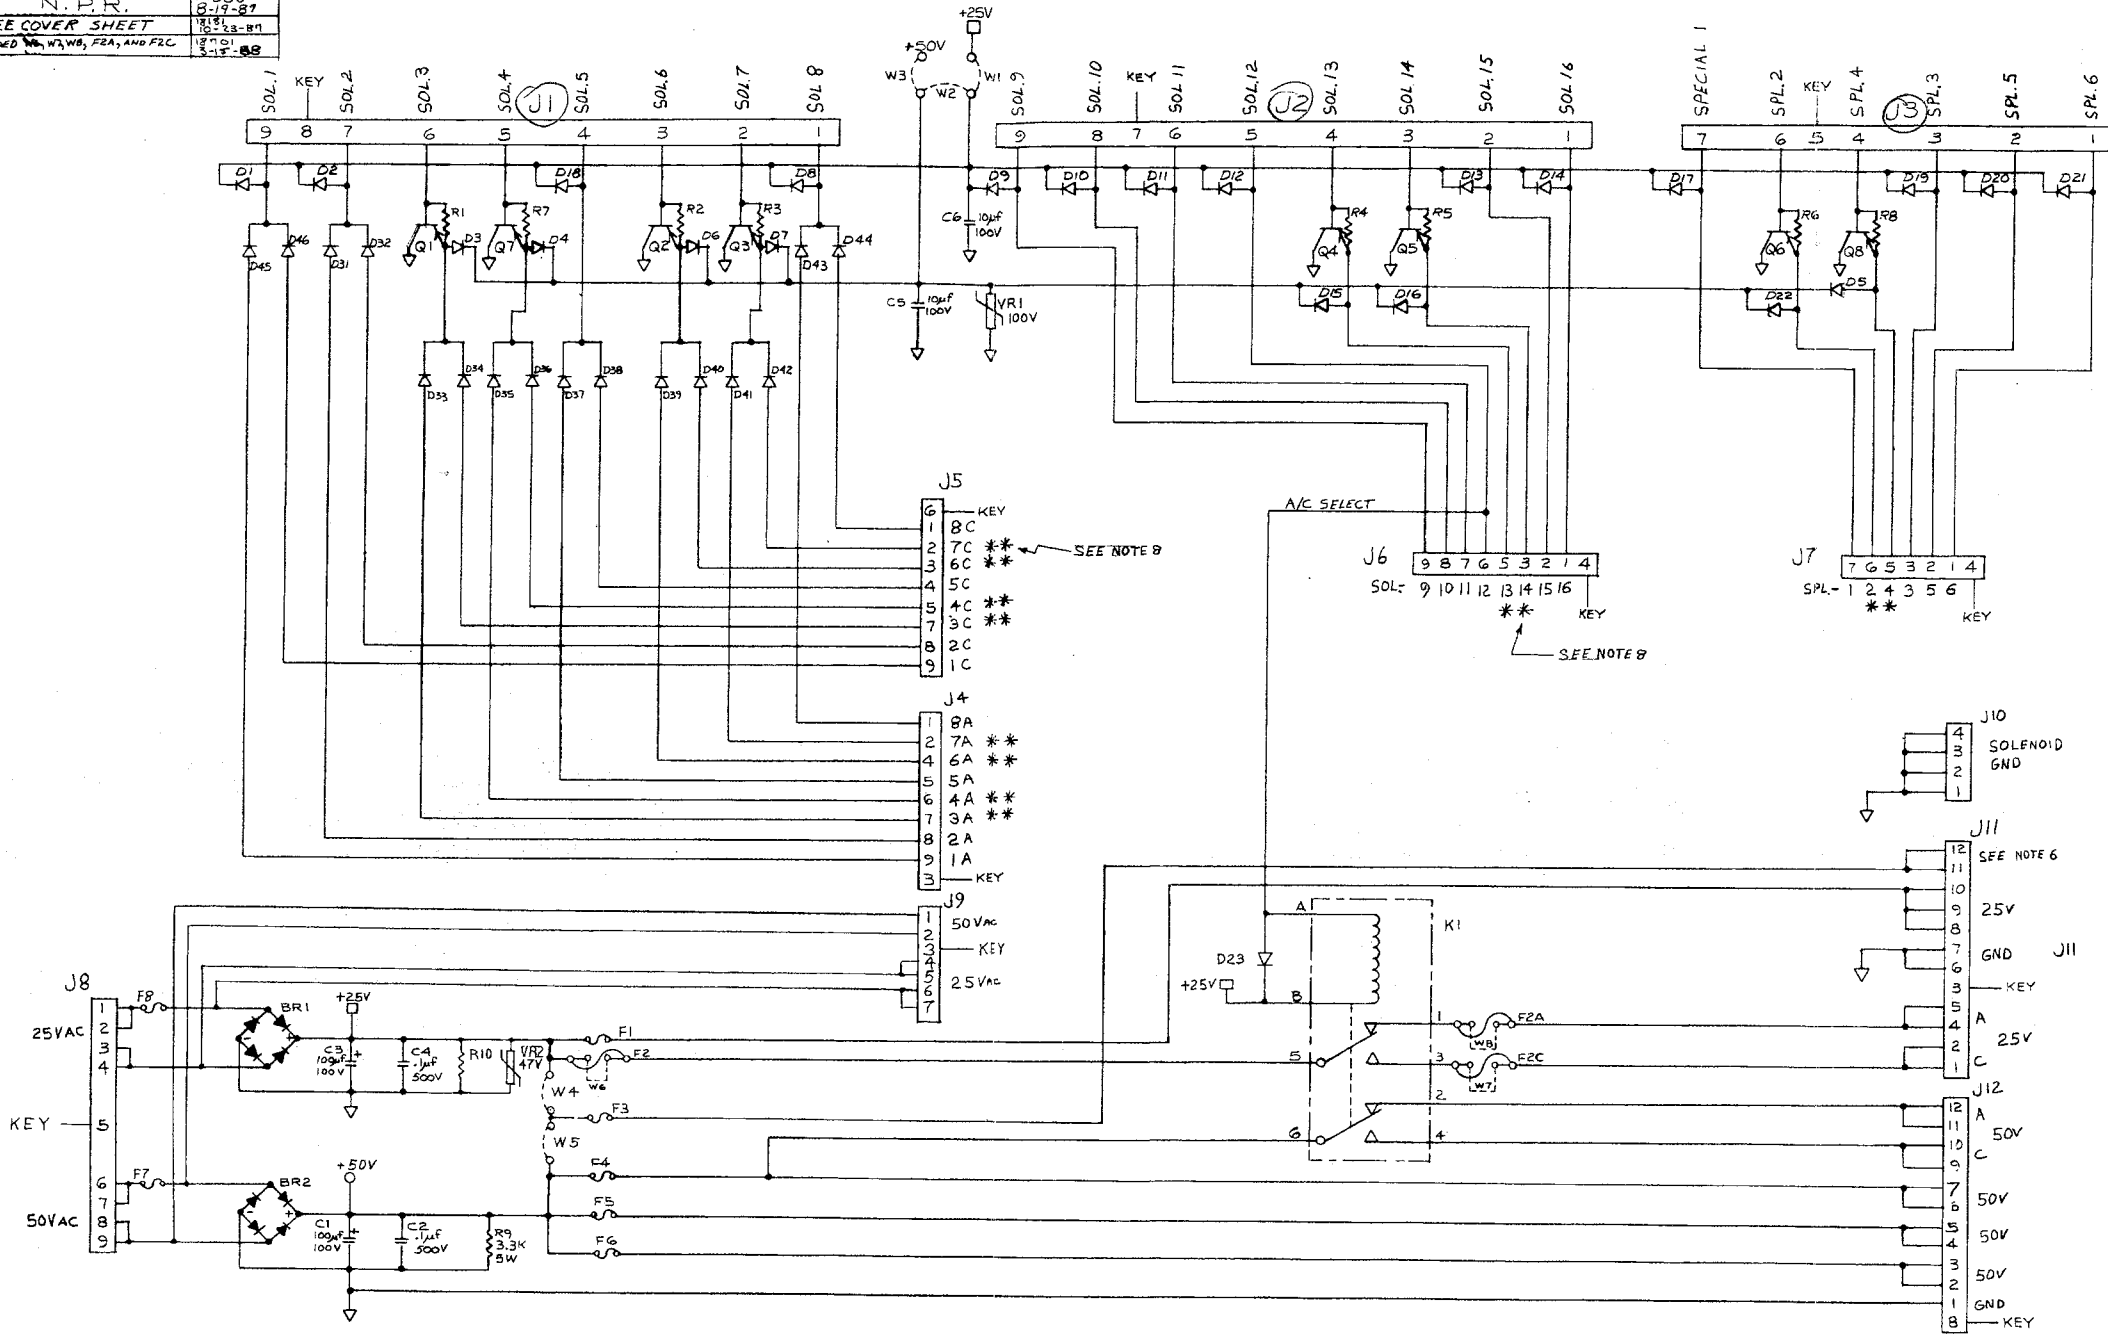 N. P. R.
8-19-87
EE COVER SHEET
18181
10-23-87
ED W6, W7, W8, F2A, AND F2C
18701
3-15-88
SOL.1 KEY SOL.2 SOL.3 SOL.4 J1 SOL.5 SOL.6 SOL.7 SOL 8
9 8 7 6 5 4 3 2 1
+50V
+25V
W3 W2 W1
SOL.9 SOL.10 KEY SOL.11 SOL.12 J2 SOL.13 SOL.14 SOL.15 SOL 16
9 8 7 6 5 4 3 2 1
SPECIAL 1 SPL.2 KEY SPL.4 J3 SPL.3 SPL.5 SPL.6
7 6 5 4 3 2 1
D1 D2 D18 D8 D9 D10 D11 D12 D13 D14 D17 D19 D20 D21
R1 R7 R2 R3 R4 R5 R6 R8
Q1 D3 Q7 D4 Q2 D6 Q3 D7 Q4 Q5 Q6 Q8
D45 D46 D31 D32 D43 D44
C6 10µf 100V
C5 10µf 100V
VR1 100V
D15 D16 D22 D5
D33 D34 D35 D36 D37 D38 D39 D40 D41 D42
J5
6 KEY
1 8C
2 7C ** SEE NOTE 8
3 6C **
4 5C
5 4C **
7 3C **
8 2C
9 1C
A/C SELECT
J6 9 8 7 6 5 3 2 1 4
SOL- 9 10 11 12 13 14 15 16 KEY
**
SEE NOTE 8
J7 7 6 5 3 2 1 4
SPL.- 1 2 4 3 5 6
**
KEY
J4
1 8A
2 7A **
4 6A **
5 5A
6 4A **
7 3A **
8 2A
9 1A
3 KEY
J10
4
3 SOLENOID
2 GND
1
J9
1 50VAC
2
3 KEY
4
5 25VAC
6
7
J11
12 SEE NOTE 6
11
10
9 25V
8
7 GND J11
6
3 KEY
5 A
4
25V
2
1 C
A K1
D23
+25V
B
1 F2A
W8
5 3 F2C
W7
2
6 4
J8
1
25VAC 2
3
4
KEY 5
6
7
50VAC 8
9
F8 BR1 +25V
C3 100µf 100V +
C4 .1µf 500V
R10 VR2 47V
F1
F2
W6
W4
F3
W5
F7 BR2 +50V
C1 100µf 100V +
C2 .1µf 500V
R9 3.3K 5W
F4
F5
F6
J12
12 A
11
50V
10 C
9
7 50V
6
5 50V
4
3 50V
2
1 GND
8 KEY